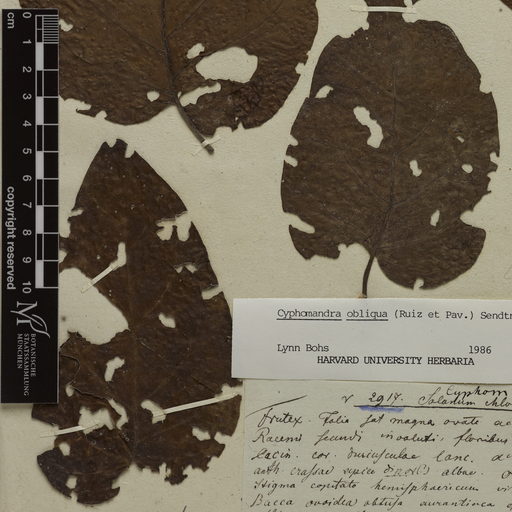 cm
0
1
2
3
4
5
6
7
8
9
10
copyright reserved
BOTANISCHE
STAATSSAMMLUNG
MÜNCHEN
Cyphomandra obliqua (Ruiz et Pav.) Sendtn
Lynn Bohs 1986
HARVARD UNIVERSITY HERBARIA
Cyphom
2917. Solanum
Frutex. Folia magna ovata
Racemi secundi involuti. floribus
Lacin. cor. lanc.
anth. crassae albae.
Stigma capitato hemisphaericum
Bacca ovoidea obtusa aurantiaca